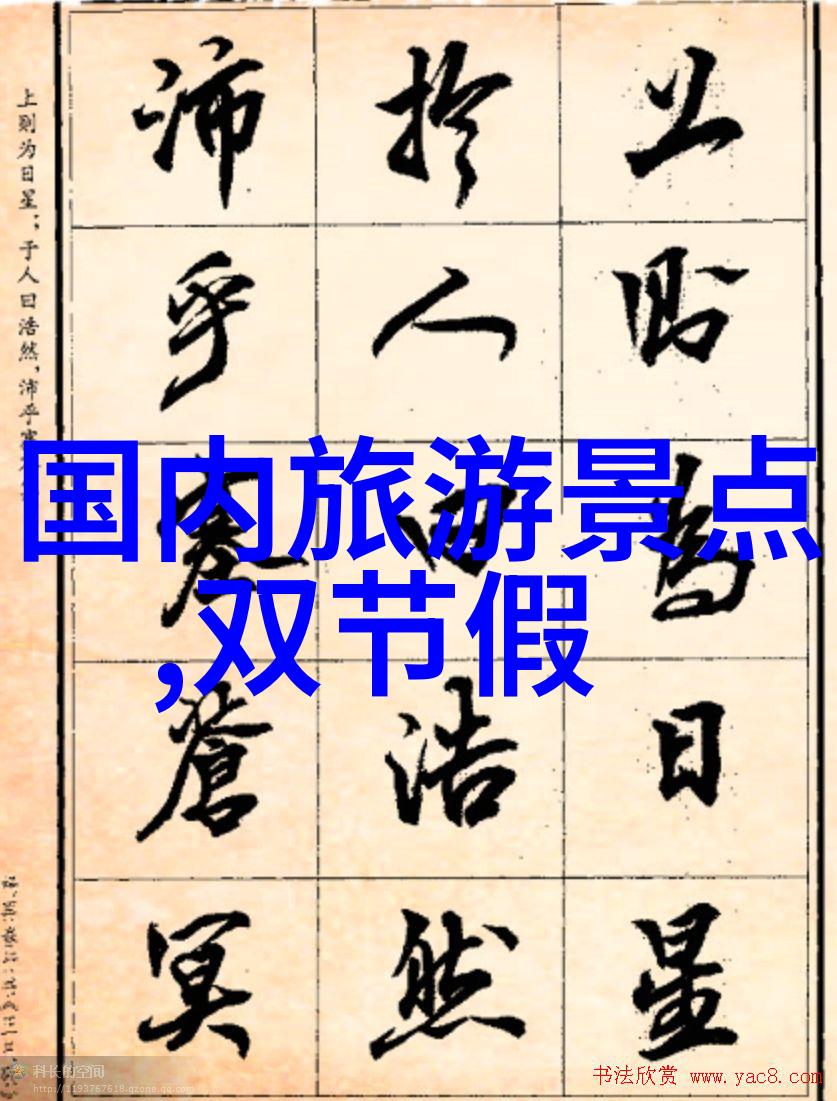 上则为日星；于人曰浩然，沛乎塞
上則為日星
於人曰浩然
沛乎塞蒼冥
国内旅游景点
,双节假
科长的空间
http://1193767618.qzone.qq.com
书法欣赏 www.yac8.com